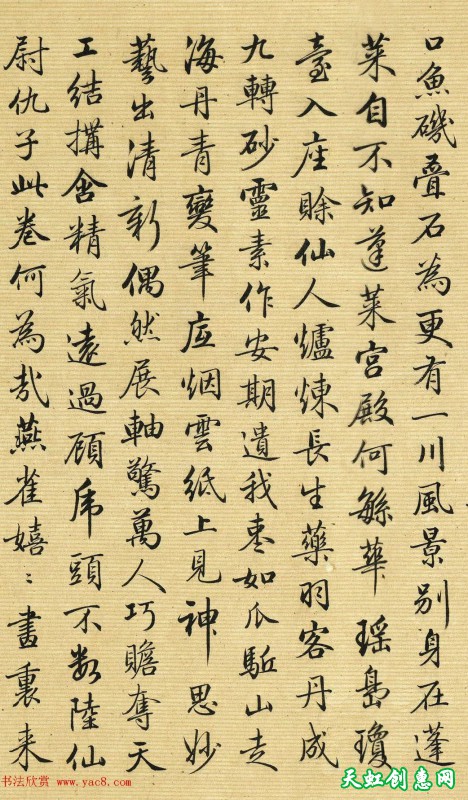 口魚磯叠石為更有一川風景别身在蓬
萊自不知蓬萊宮殿何緐華瑶島瓊
臺入座賒仙人爐煉長生藥羽客丹成
九轉砂靈素作安期遺我棗如瓜駈山走
海丹青變筆底烟雲紙上見神思妙
藝出清新偶然展軸驚萬人巧贍奪天
工結搆含精氣遠過顧虎頭不數陸仙
尉仇子此卷何為哉燕雀嬉〻畫裏来
书法欣赏 www.yac8.com
天虹创惠网